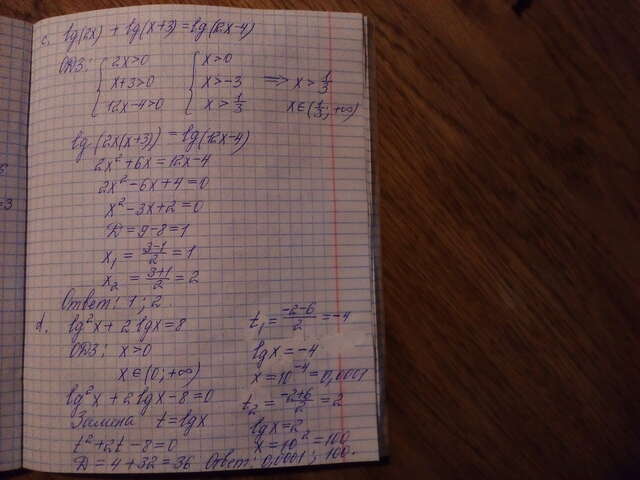 c. lg(2x) + lg(x+3) = lg(12x-4)
ОДЗ: { 2x>0 { x>0
x+3>0 x>-3 ⟹ x > 1/3
12x-4>0 x > 1/3 x∈(1/3; +∞)
lg(2x(x+3)) = lg(12x-4)
2x²+6x = 12x-4
2x²-6x+4=0
x²-3x+2=0
D=9-8=1
x₁ = (3-1)/2 = 1
x₂ = (3+1)/2 = 2
Ответ: 1; 2.
d. lg²x + 2 lgx = 8
ОДЗ: x>0
x∈(0; +∞)
lg²x + 2lgx - 8 = 0
Замена t = lgx
t²+2t-8=0
D = 4+32 = 36
t₁ = (-2-6)/2 = -4
lgx = -4
x = 10⁻⁴ = 0,0001
t₂ = (-2+6)/2 = 2
lgx = 2
x = 10² = 100
Ответ: 0,0001; 100.
6
=3